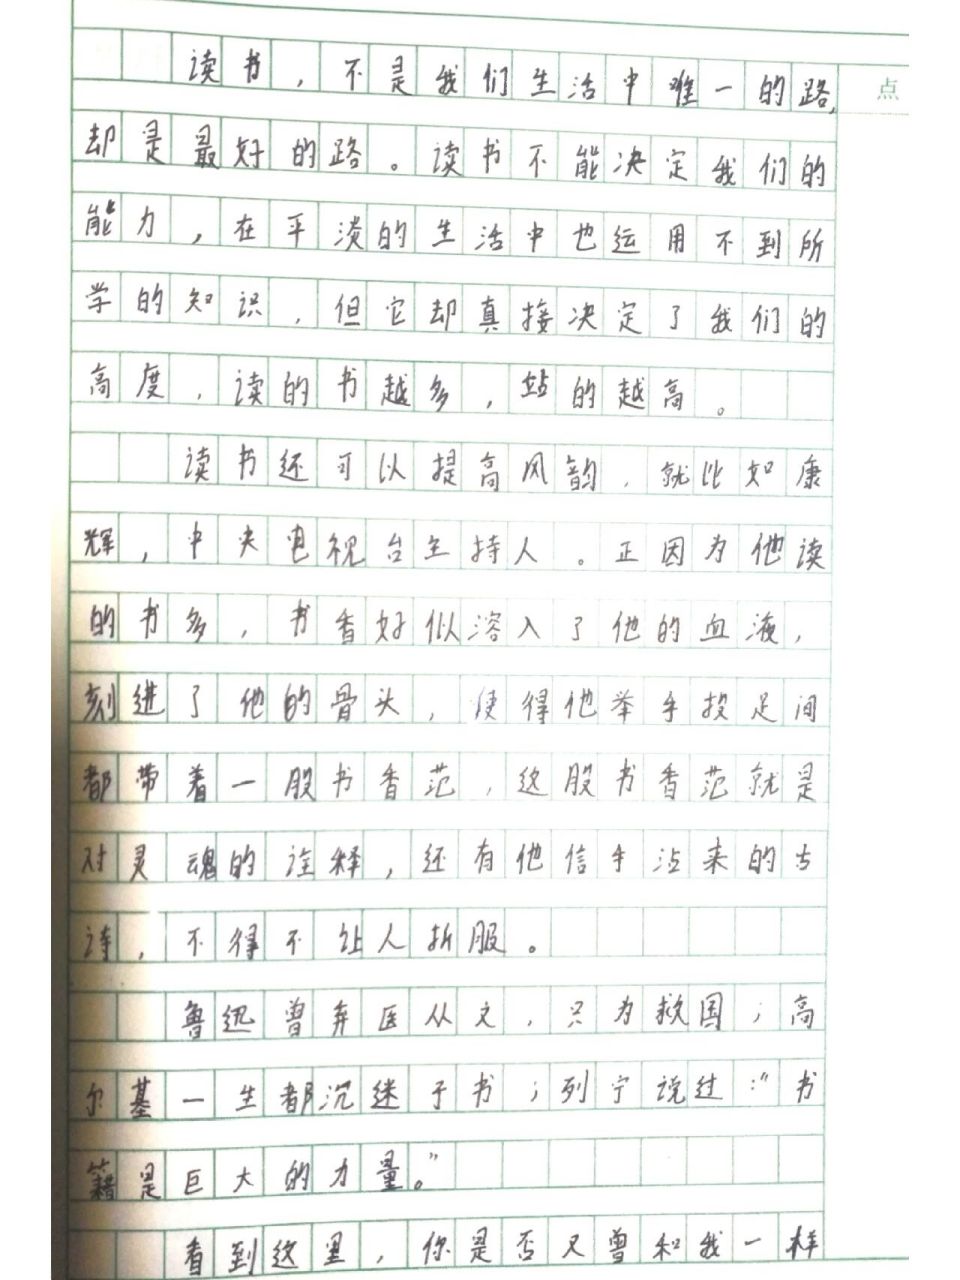 读书，不是我们生活中唯一的路，
点
却是最好的路。读书不能决定我们的
能力，在平淡的生活中也运用不到所
学的知识，但它却真接决定了我们的
高度，读的书越多，站的越高。
读书还可以提高风韵，就比如康
辉，中央电视台主持人。正因为他读
的书多，书香好似溶入了他的血液，
刻进了他的骨头，使得他举手投足间
都带着一股书香范，这股书香范就是
对灵魂的诠释，还有他信手沾来的古
诗，不得不让人折服。
鲁迅曾弃医从文，只为救国；高
尔基一生都沉迷于书；列宁说过：“书
籍是巨大的力量。”
看到这里，你是否又曾和我一样